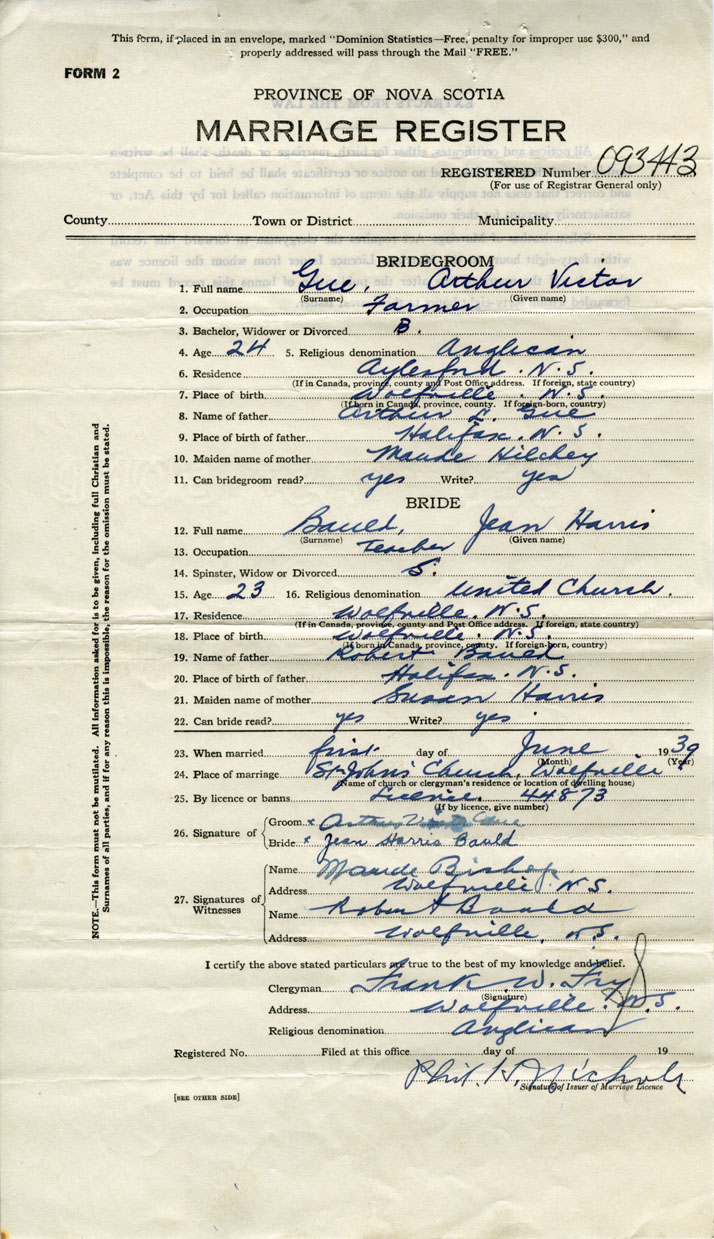 This form, if placed in an envelope, marked "Dominion Statistics—Free, penalty for improper use $300," and
properly addressed will pass through the Mail "FREE."
FORM 2
PROVINCE OF NOVA SCOTIA
MARRIAGE REGISTER
REGISTERED Number 093443
(For use of Registrar General only)
County Town or District Municipality
BRIDEGROOM
1. Full name Gue, Arthur Victor
(Surname) (Given name)
2. Occupation Farmer
3. Bachelor, Widower or Divorced B.
4. Age 24 5. Religious denomination Anglican
6. Residence Aylesford. N.S.
(If in Canada, province, county and Post Office address. If foreign, state country)
7. Place of birth Wolfville. N.S.
(If born in Canada, province, county. If foreign-born, country)
8. Name of father Arthur L. Gue
9. Place of birth of father Halifax. N.S.
10. Maiden name of mother Maude Hilchey
11. Can bridegroom read? yes Write? yes
BRIDE
12. Full name Bauld, Jean Harris
(Surname) (Given name)
13. Occupation Teacher
14. Spinster, Widow or Divorced S.
15. Age 23 16. Religious denomination United Church.
17. Residence Wolfville. N.S.
(If in Canada, province, county and Post Office address. If foreign, state country)
18. Place of birth Wolfville. N.S.
(If born in Canada, province, county. If foreign-born, country)
19. Name of father Robert Bauld
20. Place of birth of father Halifax. N.S.
21. Maiden name of mother Susan Harris
22. Can bride read? yes Write? yes.
23. When married first day of June 1939
(Month) (Year)
24. Place of marriage St. John's Church, Wolfville
(Name of church or clergyman's residence or location of dwelling house)
25. By licence or banns Licence. 44873
(If by licence, give number)
26. Signature of Groom x Arthur Gue
Bride x Jean Harris Bauld
27. Signatures of Witnesses
Name Maude Bishop
Address Wolfville. N.S.
Name Robert Bauld
Address Wolfville, N.S.
I certify the above stated particulars are true to the best of my knowledge and belief.
Clergyman Frank W. Fry
(Signature)
Address Wolfville. N.S.
Religious denomination Anglican
Registered No. Filed at this office day of 19
Phil. H. Nichols
Signature of Issuer of Marriage Licence
[SEE OTHER SIDE]
NOTE.—This form must not be mutilated. All information asked for is to be given, including full Christian and
Surnames of all parties, and if for any reason this is impossible, the reason for the omission must be stated.